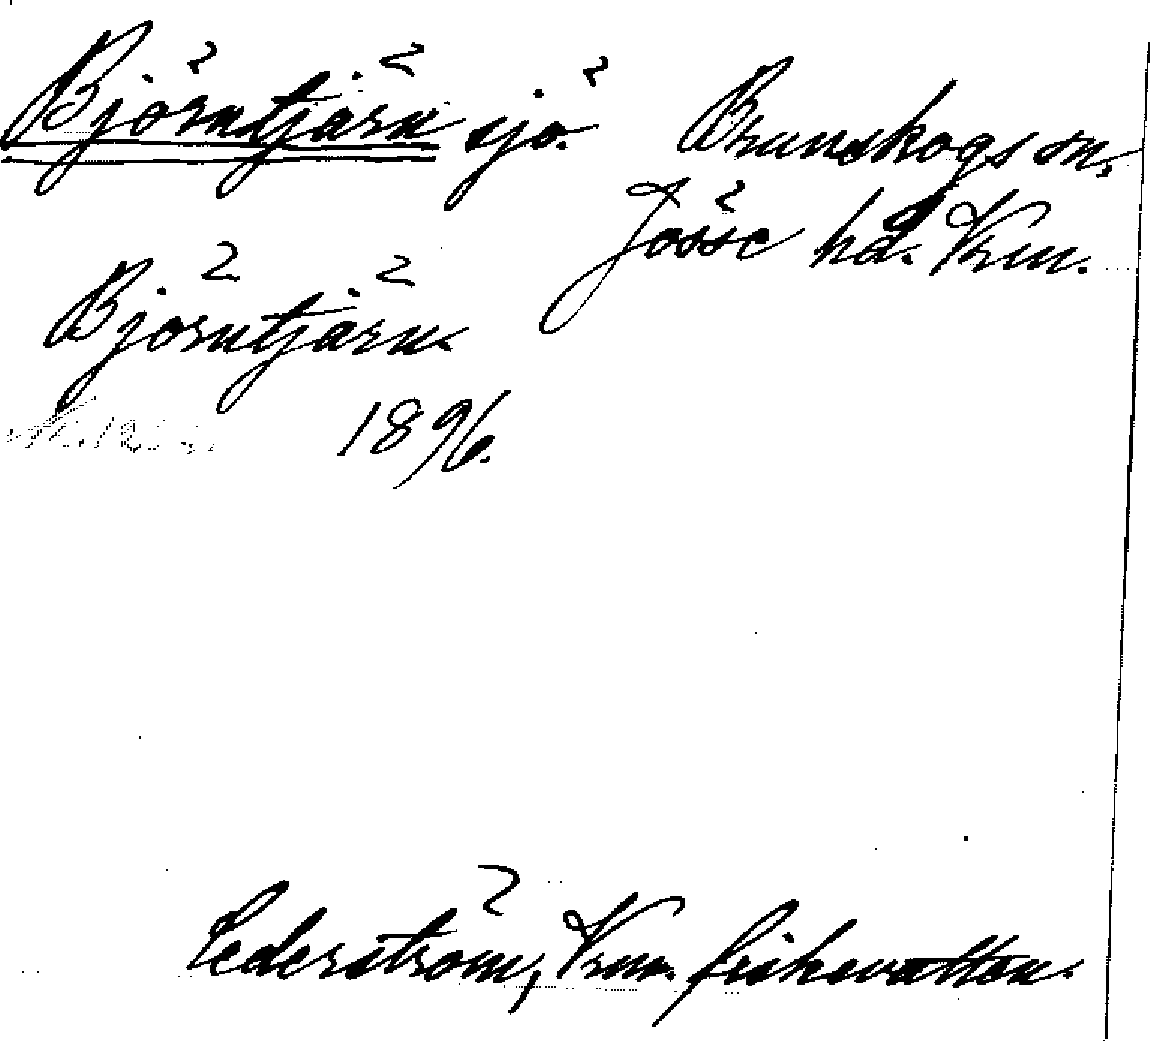 Björntjärn sjö. Brunskogs sn,
Jösse hd. Vrm.
Björntjärn.
1896.
Cederström, Vrm. fiskevatten.